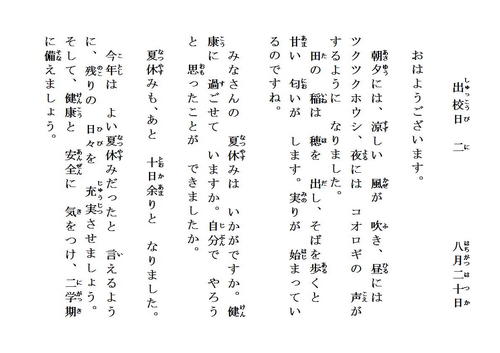 出校日　二　　　八月二十日
おはようございます。
朝夕には、涼しい　風が　吹き、昼には
ツクツクホウシ、夜には　コオロギの　声が
するように　なりました。
田の　稲は　穂を　出し、そばを歩くと
甘い　匂いが　します。実りが　始まってい
るのですね。
みなさんの　夏休みは　いかがですか。健
康に　過ごせて　いますか。自分で　やろう
と　思ったことが　できましたか。
夏休みも、あと　十日余りと　なりました。
今年は　よい夏休みだったと　言えるよう
に、残りの　日々を　充実させましょう。
そして、健康と　安全に　気をつけ、二学期
に備えましょう。